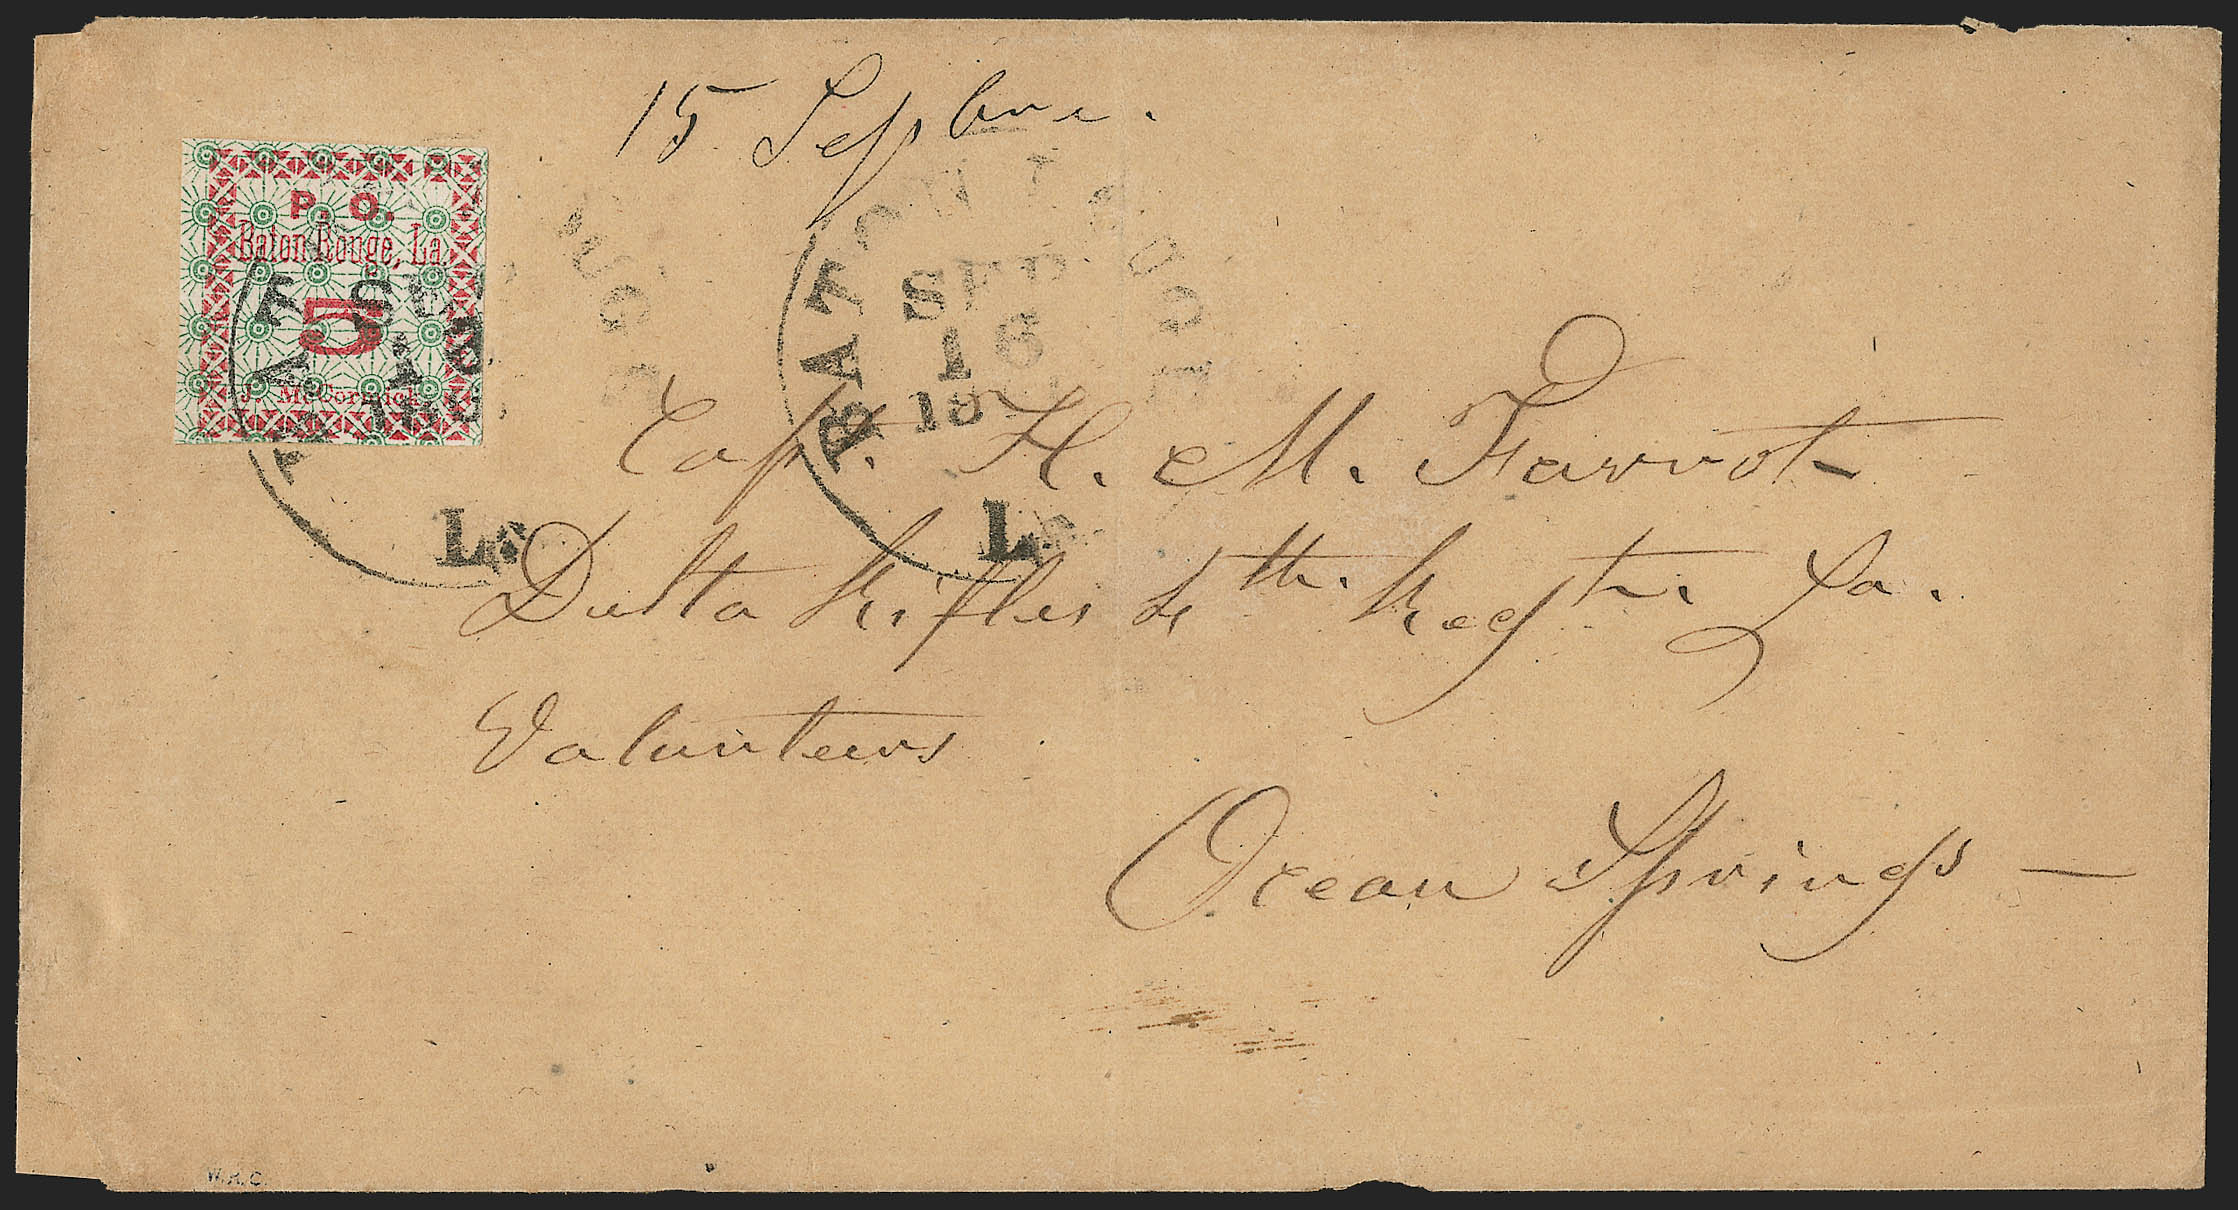 15 Sepbre.
P. O.
Baton Rouge, La.
5
J. McCormick
BATON ROUGE
SEP
16
18
La
BATON ROUGE
SEP
16
186
La
Capt. H. M. Favrot
Delta Rifles 4th. Regt. La.
Volunteers
Ocean Springs —
W.R.C.